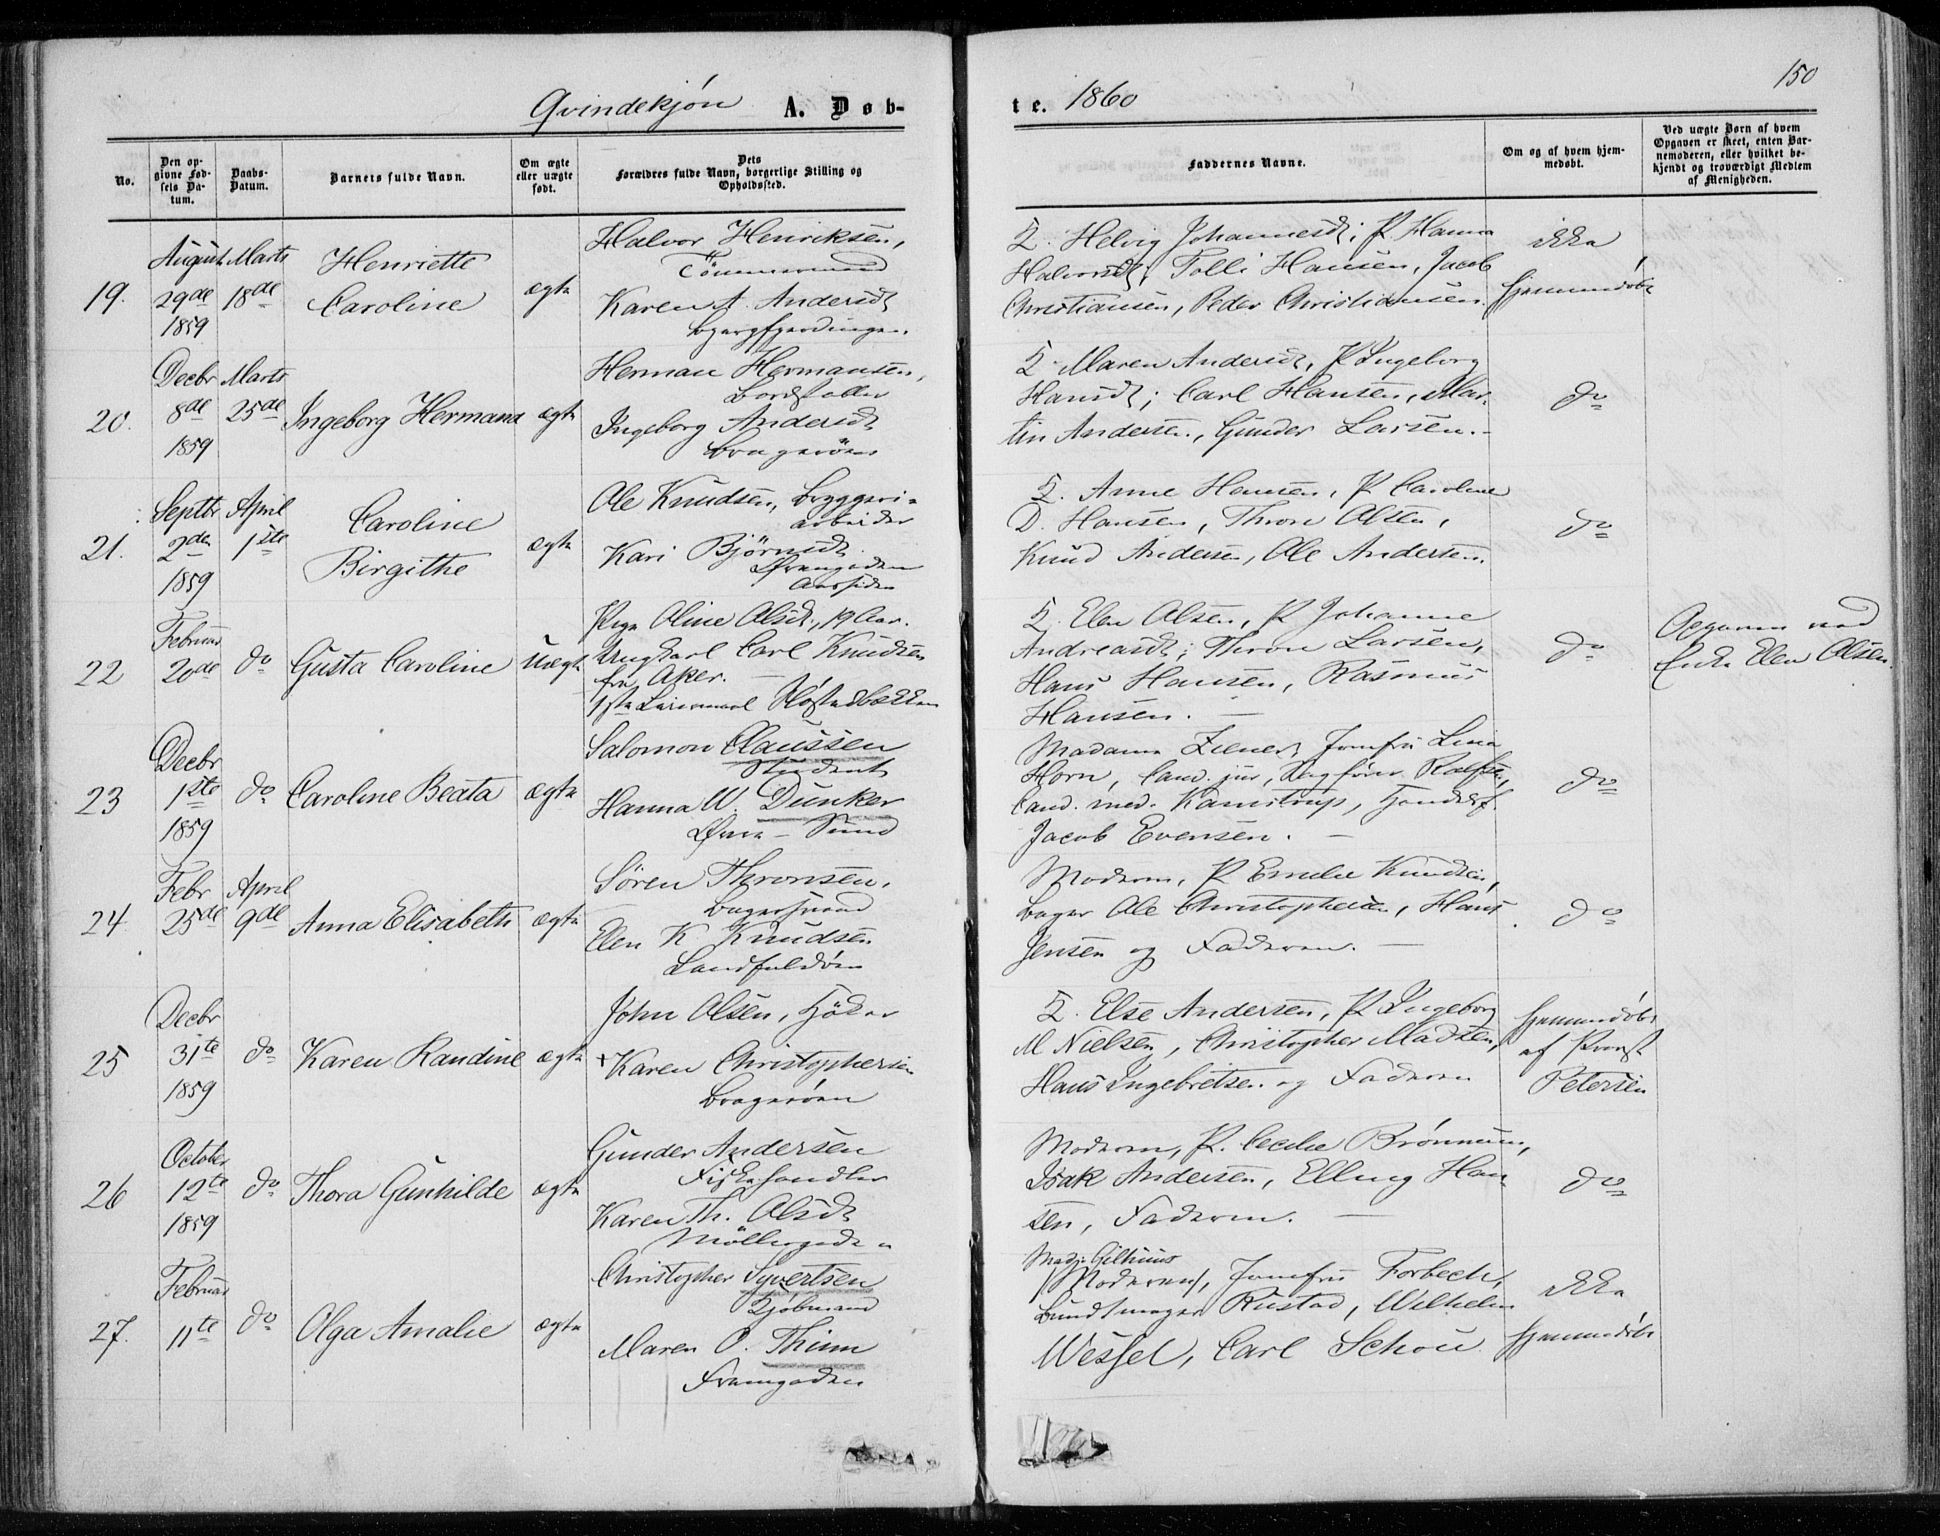 Qvindekjøn A. Døb-
te. 1860
150
No.
Den op-
givne Fød-
sels Da-
tum.
Daabs-
Datum.
Barnets fulde Navn.
Om ægte
eller uægte
født.
Dets
Forældres fulde Navn, borgerlige Stilling og
Opholdssted.
Faddernes Navne.
Om og af hvem hjem-
medøbt.
Ved uægte Børn af hvem
Opgaven er skeet, enten Bar-
nemoderen, eller hvilket be-
kjendt og troværdigt Medlem
af Menigheden.
19.
August
29de
1859
Marts
18de
Henriette
Caroline
ægte
Halvor Henriksen,
Tømmermand
Karen A. Andersdt
K. Helvig Johannesdt; P. Hanna
Halvorsdt; Tolli Hansen, Jacob
Christiansen, Peder Christiansen
ikke
hjemmedøbt
20.
Decbr
8de
1859
Marts
25de
Ingeborg Hermana
ægte
Herman Hermansen,
Ingeborg Andersdt
Bragerøen
K. Maren Andersdt, P. Ingeborg
Hansdt; Carl Hansen, Mar-
tin Andersen, Gunder Larsen.-
do
21.
Septbr
2den
1859
April
1ste
Caroline
Birgithe
ægte
Ole Knudsen, Bryggeri-
arbeider
Kari Bjørnsdt.
Øvregaden
Aassiden
K. Anne Hansen, P. Caroline
D. Hansen, Thron Olsen,
Knud Andersen, Ole Andersen.
do
22
Februar
20de
do
Gusta Caroline
Uægte
Pige Oline Olsdt, 19 Aar.
Ungkarl Carl Knudsen
fra Aker. -
1ste Leiermaal
K. Elen Olsen, P. Johanne
Andreasdt; Thron Larsen,
Hans Hansen, Rasmus
Hansen. -
do
Opgaven ved
Enke Elen Olsen.
23
Decbr
1ste
1859
do
Caroline Beata
ægte
Salomon Claussen
Student
Hanna W. Dunker
Øvre - Sund
Madame Ziener, Jomfru Lina
Horn, Cand. jur, Sagfører Rolfsen,
Cand. med. Kamstrup, Handelsf.
Jacob Evensen. -
do
24
Febr
25de
April
9de
Anna Elisabeth
ægte
Søren Thronsen.
Bagersvend
Elen K Knudsen
Landfaldøen
Moderen, P. Emelie Knudsen,
Bager Ole Christophersen, Hans
Jensen og Faderen. -
do
25
Decbr
31te
1859
do
Karen Randine
ægte
John Olsen, Høker
+Karen Christophersen
Bragerøen
K. Else Andersen, P. Ingeborg
M Nielsen, Christopher Madsen,
Hans Ingebretsen og Faderen
hjemmedøbt
af Provst
Petersen
26
October
12te
1859
do
Thora Gunhilde
ægte
Gunder Andersen
Fiskehandler
Karen Th. Olsdt
Møllergaden
Moderen, P. Cecilie Brønnum,
Isak Andersen, Elling Han-
sen, Faderen. -
do
27.
Februar
11te
do
Olga Amalie
ægte
Christopher Syvertsen
Kjøbmand
Maren O. Thinn
Framgaden
Mad: Gilhuus
/Moderen/, Jomfru Forbech,
Bundtmager Rustad, Wilhelm
Wessel, Carl Schou
ikke
hjemmedøbt